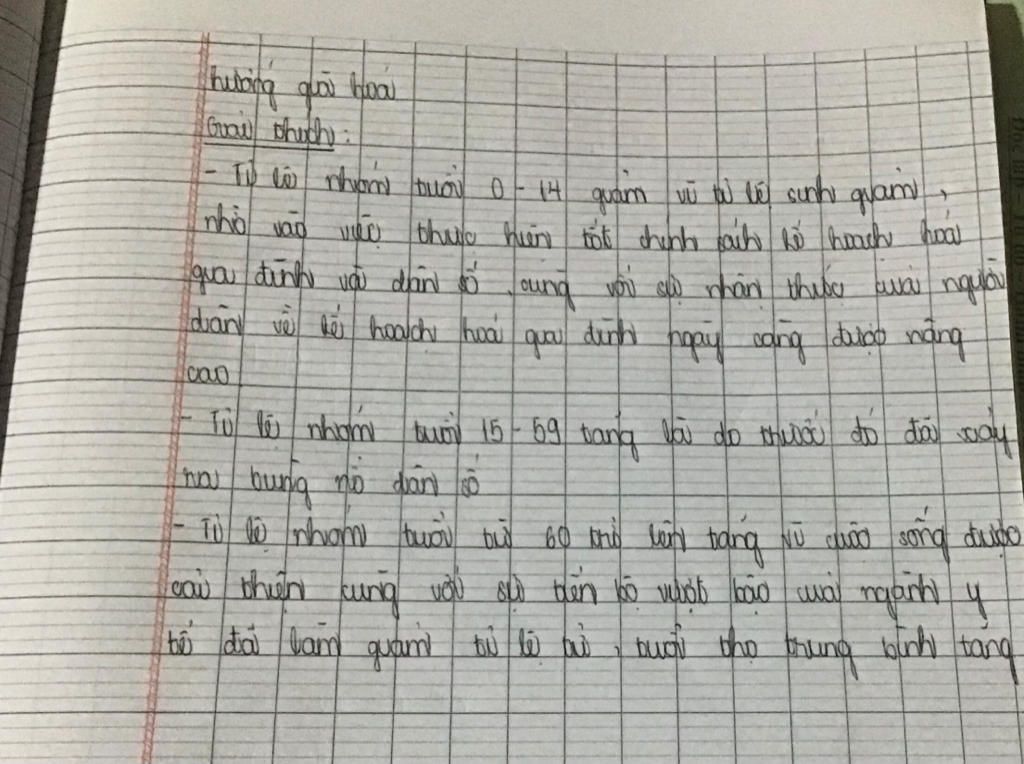 hướng già hoá
Giải thích:
- Tỉ lệ nhóm tuổi 0 - 14 giảm vì tỉ lệ sinh giảm,
nhờ vào việc thực hiện tốt chính sách kế hoạch hoá
gia đình và dân số, cùng với sự nhận thức của người
dân về kế hoạch hoá gia đình ngày càng được nâng
cao
- Tỉ lệ nhóm tuổi 15 - 59 tăng là do trước đó đã xảy
ra bùng nổ dân số
- Tỉ lệ nhóm tuổi từ 60 trở lên tăng vì cuộc sống được
cải thiện cùng với sự tiến bộ vượt bậc của ngành y
tế đã làm giảm tỉ lệ tử, tuổi thọ trung bình tăng